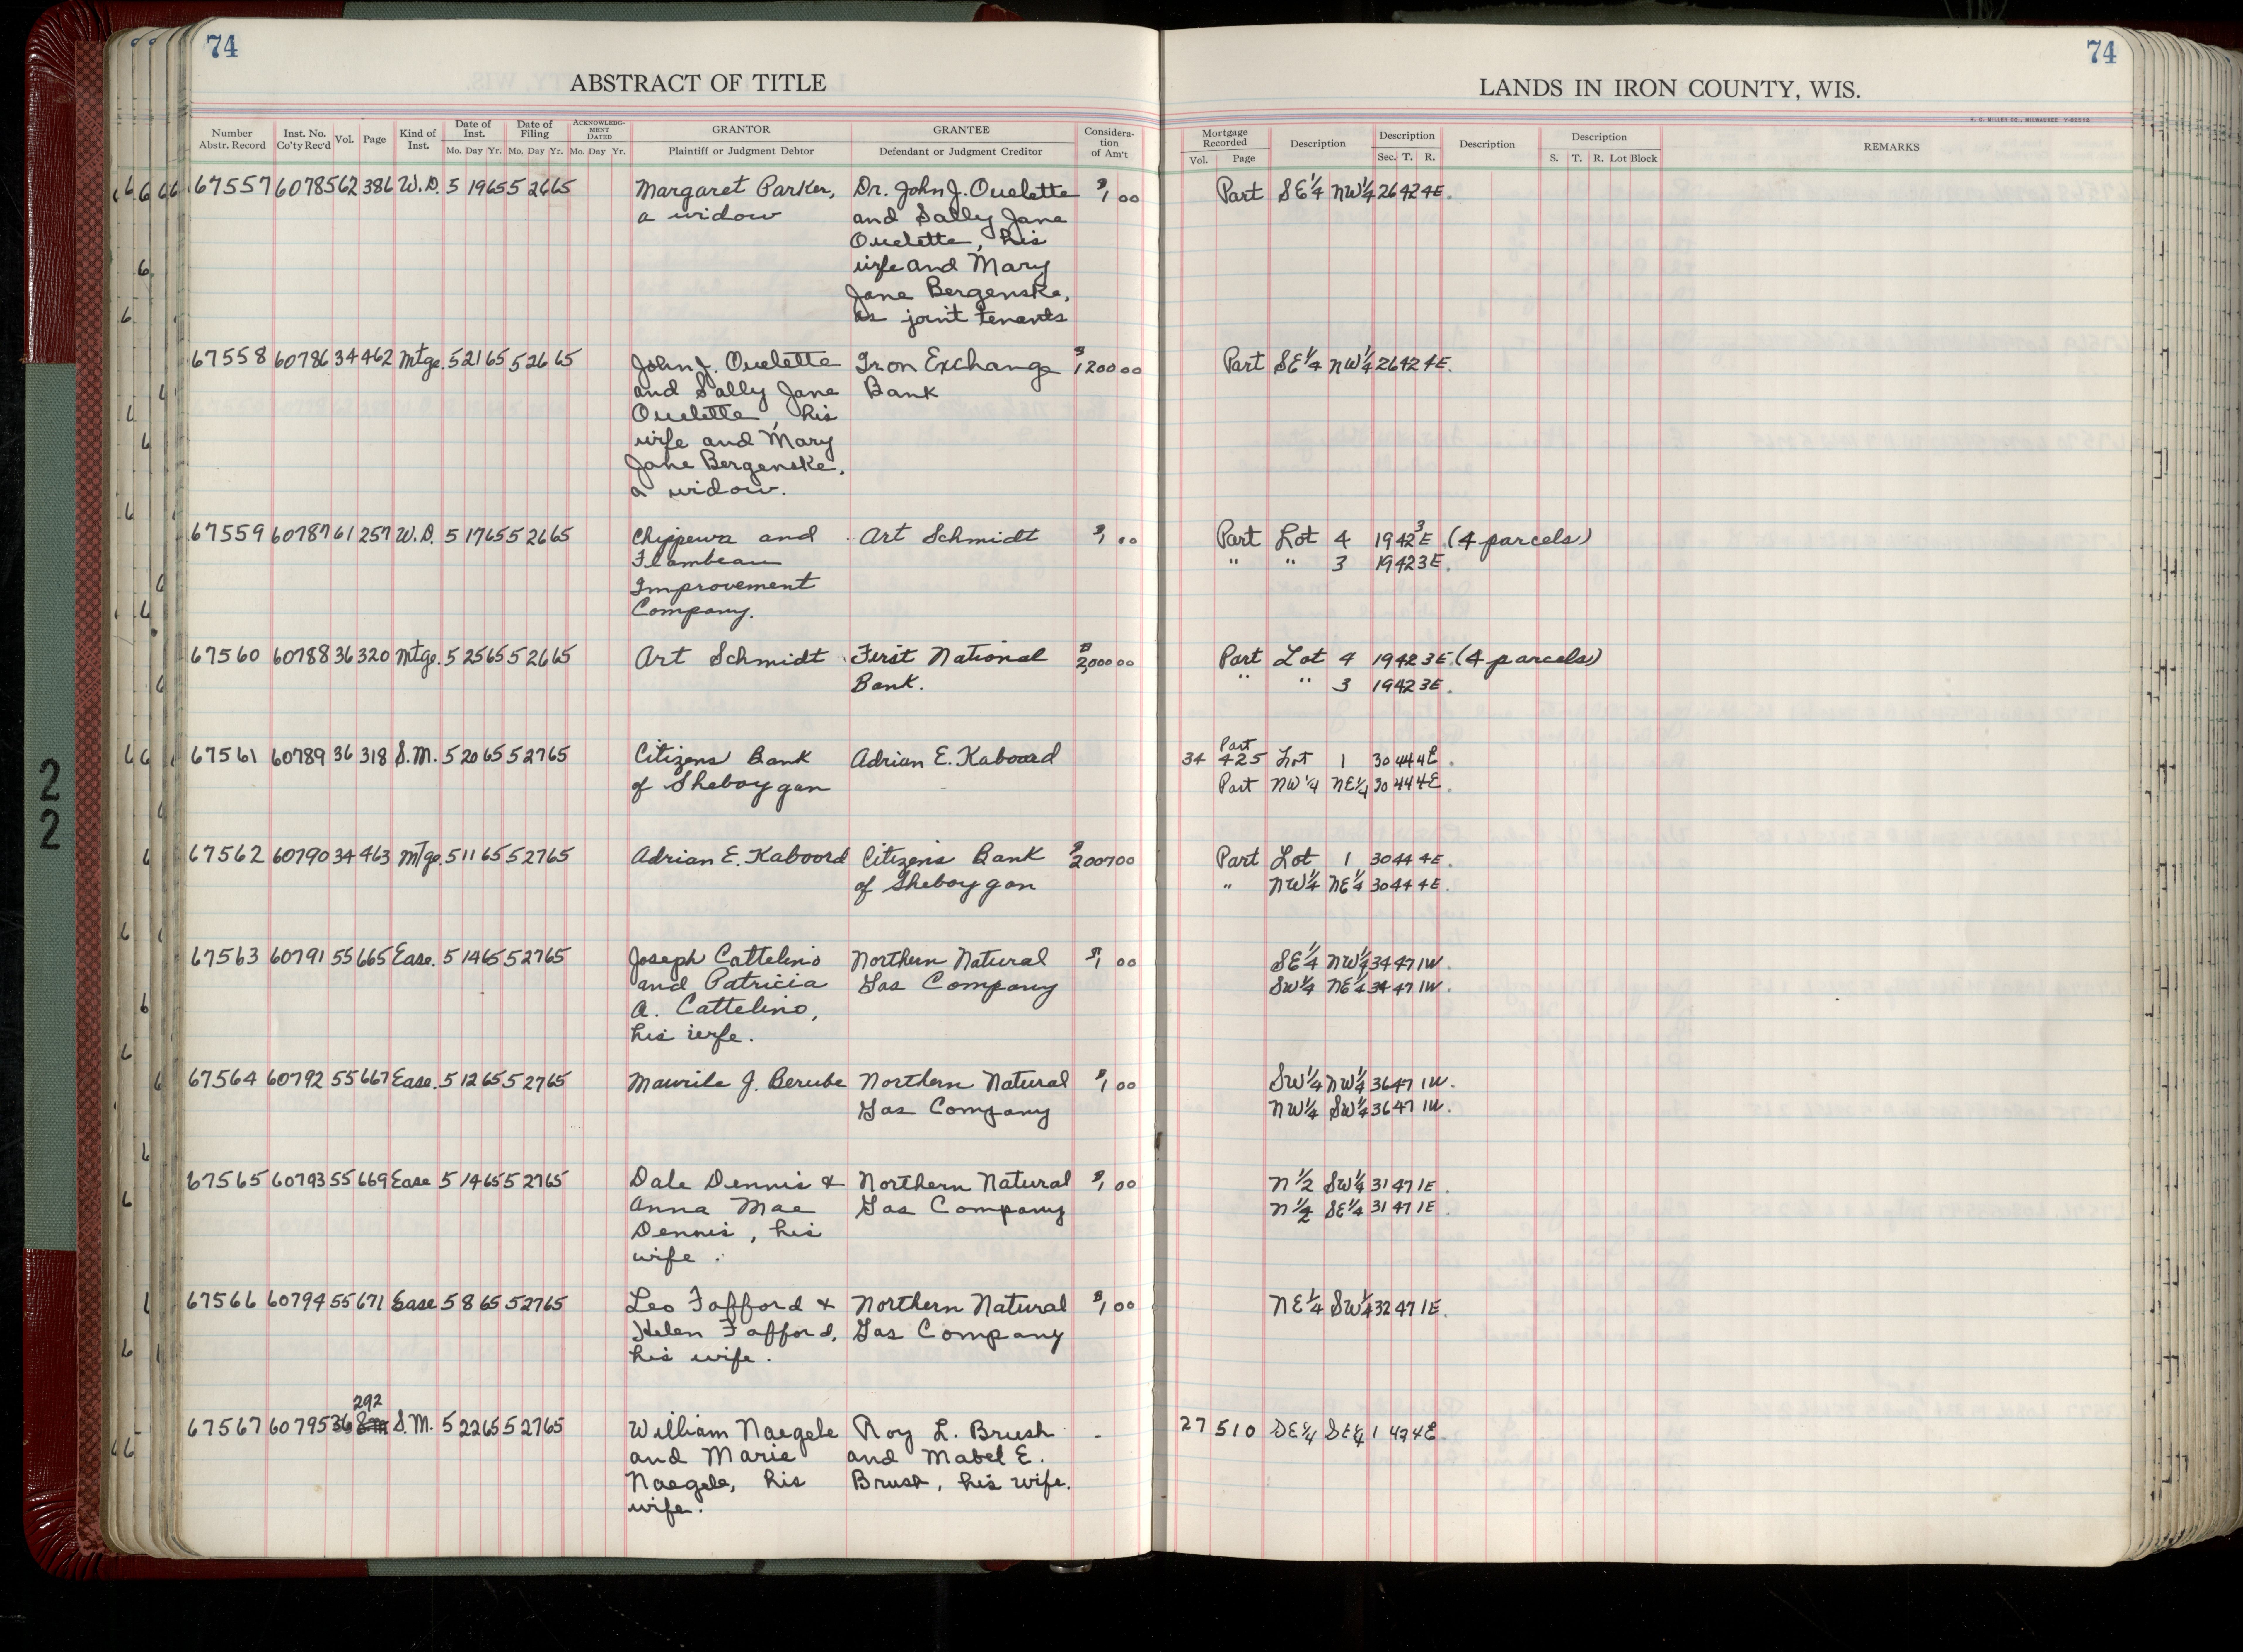 74
74
ABSTRACT OF TITLE
LANDS IN IRON COUNTY, WIS.
H. C. MILLER CO., MILWAUKEE
Number Abstr. Record Inst. No. Co'ty Rec'd Vol. Page Kind of Inst. Date of Inst. Mo. Day Yr. Date of Filing Mo. Day Yr. ACKNOWLEDGMENT DATED Mo. Day Yr. GRANTOR Plaintiff or Judgment Debtor GRANTEE Defendant or Judgment Creditor Consideration of Am't Mortgage Recorded Vol. Page Description Description Sec. T. R. Description Description S. T. R. Lot Block REMARKS
67557 60785 62 386 W.D. 5 19 65 5 26 65 Margaret Parker, Dr. John J. Ouelette $1 00 Part SE 1/4 NW 1/4 26 42 4E.
a widow and Sally Jane
Ouelette, his
wife and Mary
Jane Bergenske,
as joint tenants
67558 60786 34 462 Mtge. 5 21 65 5 26 65 John J. Ouelette Iron Exchange $1200 00 Part SE 1/4 NW 1/4 26 42 4E.
and Sally Jane Bank
Ouelette, his
wife and Mary
Jane Bergenske,
a widow.
67559 60787 61 257 W.D. 5 17 65 5 26 65 Chippewa and Art Schmidt $1 00 Part Lot 4 19 42 3E (4 parcels)
Flambeau " " 3 19 42 3E.
Improvement
Company.
67560 60788 36 320 Mtge. 5 25 65 5 26 65 Art Schmidt First National $2,000 00 Part Lot 4 19 42 3E. (4 parcels)
Bank. " " 3 19 42 3E.
Part
67561 60789 36 318 S.M. 5 20 65 5 27 65 Citizens Bank Adrian E. Kaboord 34 425 Lot 1 30 44 4E.
of Sheboygan Part NW 1/4 NE 1/4 30 44 4E.
67562 60790 34 463 Mtge. 5 11 65 5 27 65 Adrian E. Kaboord Citizens Bank Part Lot 1 30 44 4E.
of Sheboygan " NW 1/4 NE 1/4 30 44 4E.
67563 60791 55 665 Ease. 5 14 65 5 27 65 Joseph Cattelino Northern Natural $1 00 SE 1/4 NW 1/4 34 47 1W.
and Patricia Gas Company SW 1/4 NE 1/4 34 47 1W.
A. Cattelino,
his wife.
67564 60792 55 667 Ease. 5 12 65 5 27 65 Maurile J. Berube Northern Natural $1 00 SW 1/4 NW 1/4 36 47 1W.
Gas Company NW 1/4 SW 1/4 36 47 1W.
67565 60793 55 669 Ease 5 14 65 5 27 65 Dale Dennis & Northern Natural $1 00 N 1/2 SW 1/4 31 47 1E.
Anna Mae Gas Company N 1/2 SE 1/4 31 47 1E.
Dennis, his
wife.
67566 60794 55 671 Ease 5 8 65 5 27 65 Leo Fafford & Northern Natural $1 00 NE 1/4 SW 1/4 32 47 1E.
Helen Fafford, Gas Company
his wife.
292
67567 60795 36 S.M. 5 22 65 5 27 65 William Naegele Roy L. Brush - 27 510 SE 1/4 SE 1/4 1 4E.
and Marie and Mabel E.
Naegele, his Brush, his wife.
wife.
22